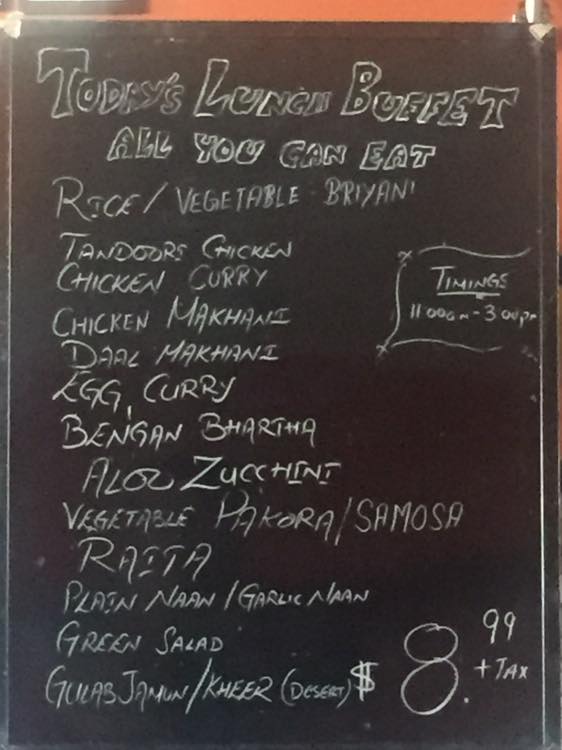 TODAY'S LUNCH BUFFET
ALL YOU CAN EAT
RICE / VEGETABLE BRIYANI
TANDOORI CHICKEN
CHICKEN CURRY
CHICKEN MAKHANI
DAAL MAKHANI
EGG CURRY
BENGAN BHARTHA
ALOO ZUCCHINI
VEGETABLE PAKORA/SAMOSA
RAITA
PLAIN NAAN / GARLIC NAAN
GREEN SALAD
GULAB JAMUN/KHEER (DESERT) $8.99 + TAX
TIMINGS
11:00am - 3:00pm